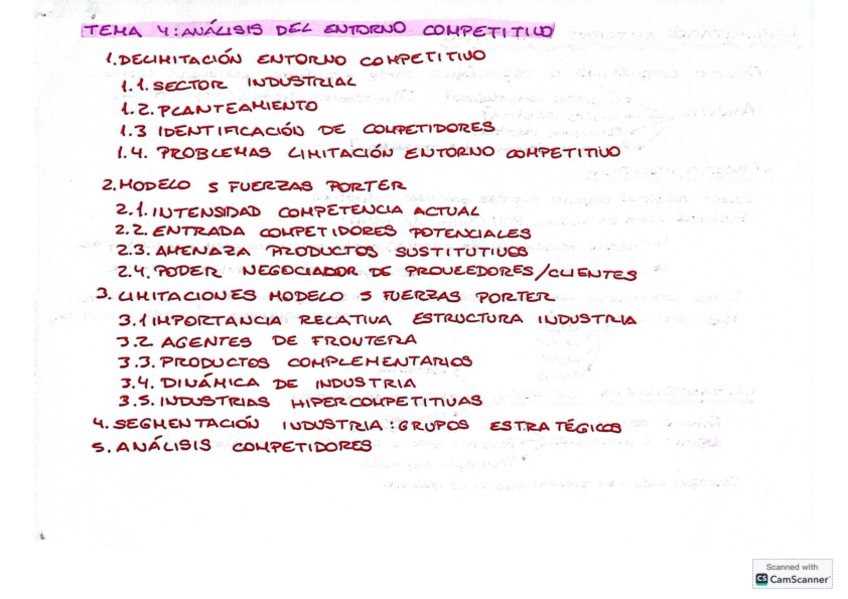 TEMA 4: ANÁLISIS DEL ENTORNO COMPETITIVO
1. DELIMITACIÓN ENTORNO COMPETITIVO
1.1. SECTOR INDUSTRIAL
1.2. PLANTEAMIENTO
1.3 IDENTIFICACIÓN DE COMPETIDORES
1.4. PROBLEMAS LIMITACIÓN ENTORNO COMPETITIVO
2. MODELO 5 FUERZAS PORTER
2.1. INTENSIDAD COMPETENCIA ACTUAL
2.2. ENTRADA COMPETIDORES POTENCIALES
2.3. AMENAZA PRODUCTOS SUSTITUTIVOS
2.4. PODER NEGOCIADOR DE PROVEEDORES/CLIENTES
3. LIMITACIONES MODELO 5 FUERZAS PORTER
3.1 IMPORTANCIA RELATIVA ESTRUCTURA INDUSTRIA
3.2. AGENTES DE FRONTERA
3.3. PRODUCTOS COMPLEMENTARIOS
3.4. DINÁMICA DE INDUSTRIA
3.5. INDUSTRIAS HIPERCOMPETITIVAS
4. SEGMENTACIÓN INDUSTRIA: GRUPOS ESTRATÉGICOS
5. ANÁLISIS COMPETIDORES
Scanned with
CS CamScanner